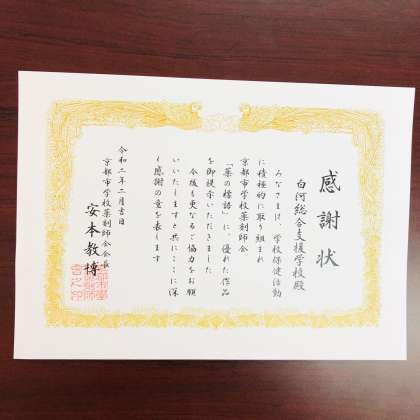 感謝状
白河総合支援学校殿
みなさまは、学校保健活動
に積極的に取り組まれ
京都市学校薬剤師会
「薬の標語」に、優れた作品
を御提示いただきました
今後も更なるご協力をお願
いいたしますと共にここに深
く感謝の意を表します
令和二年二月吉日
京都市学校薬剤師会会長
安本教博